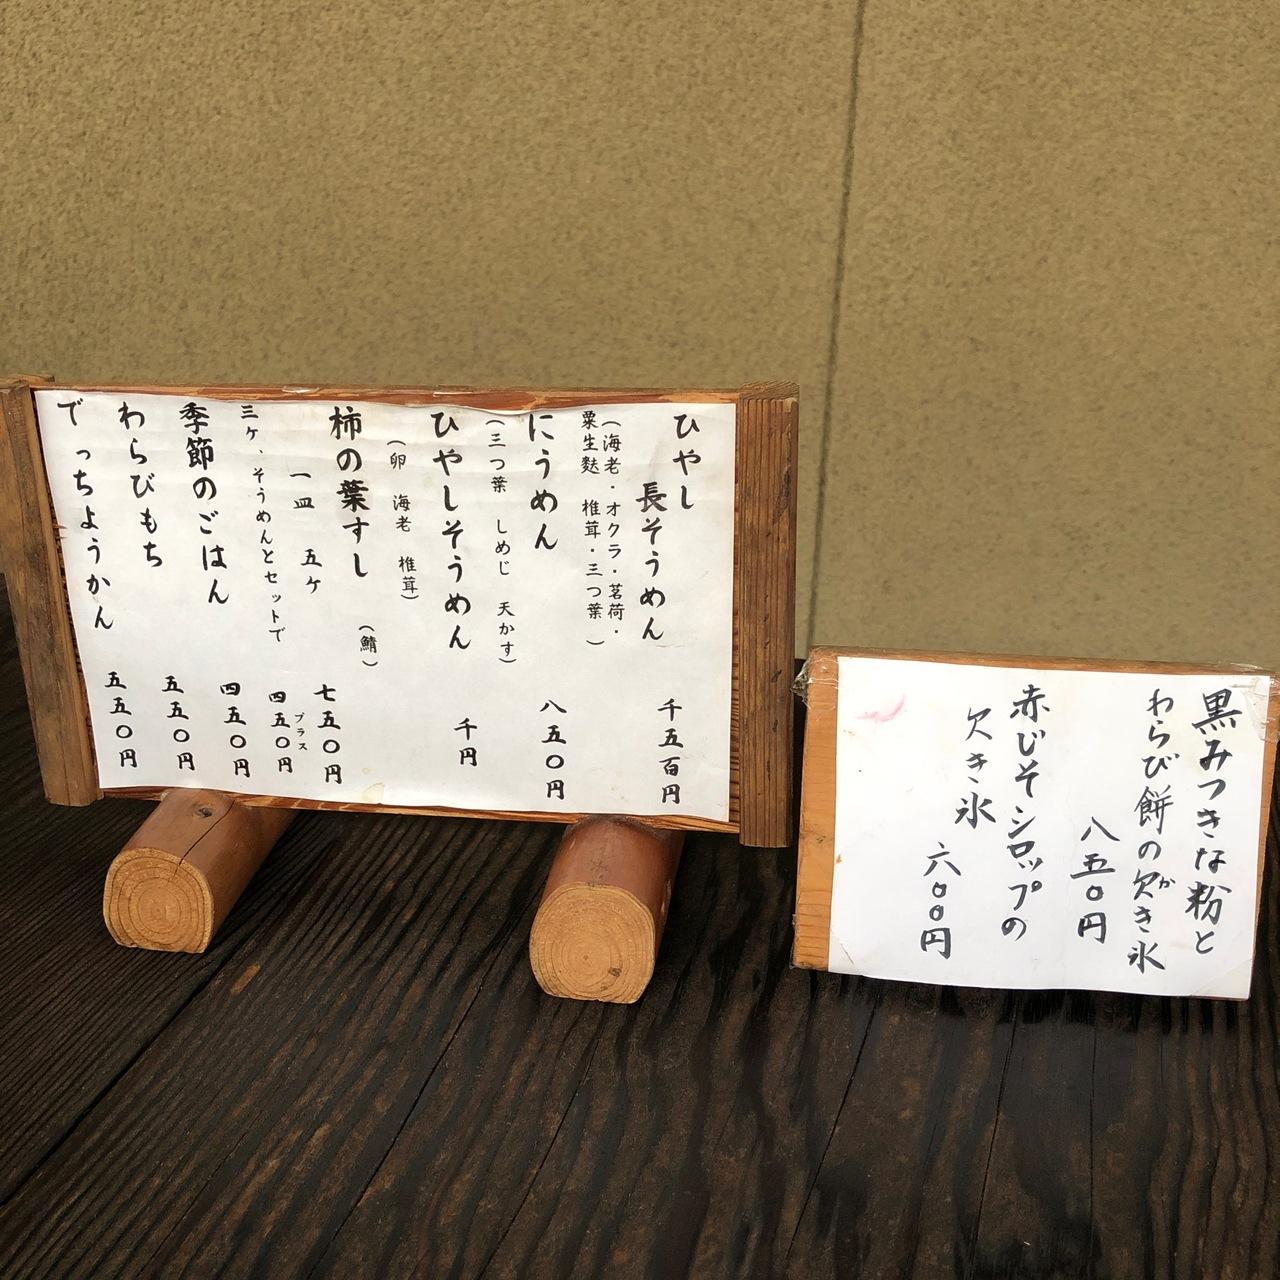 ひやし
長そうめん
千五百円
(海老・オクラ・茗荷・
粟生麩 椎茸・三つ葉)
にうめん
八五〇円
(三つ葉 しめじ 天かす)
ひやしそうめん
千円
(卵 海老 椎茸)
柿の葉すし
(鯖)
一皿 五ケ
七五〇円
三ケ、そうめんとセットで
プラス
四五〇円
季節のごはん
四五〇円
わらびもち
五五〇円
でっちようかん
五五〇円
黒みつきな粉と
わらび餅の欠き氷
か
八五〇円
赤じそシロップの
欠き氷
六〇〇円